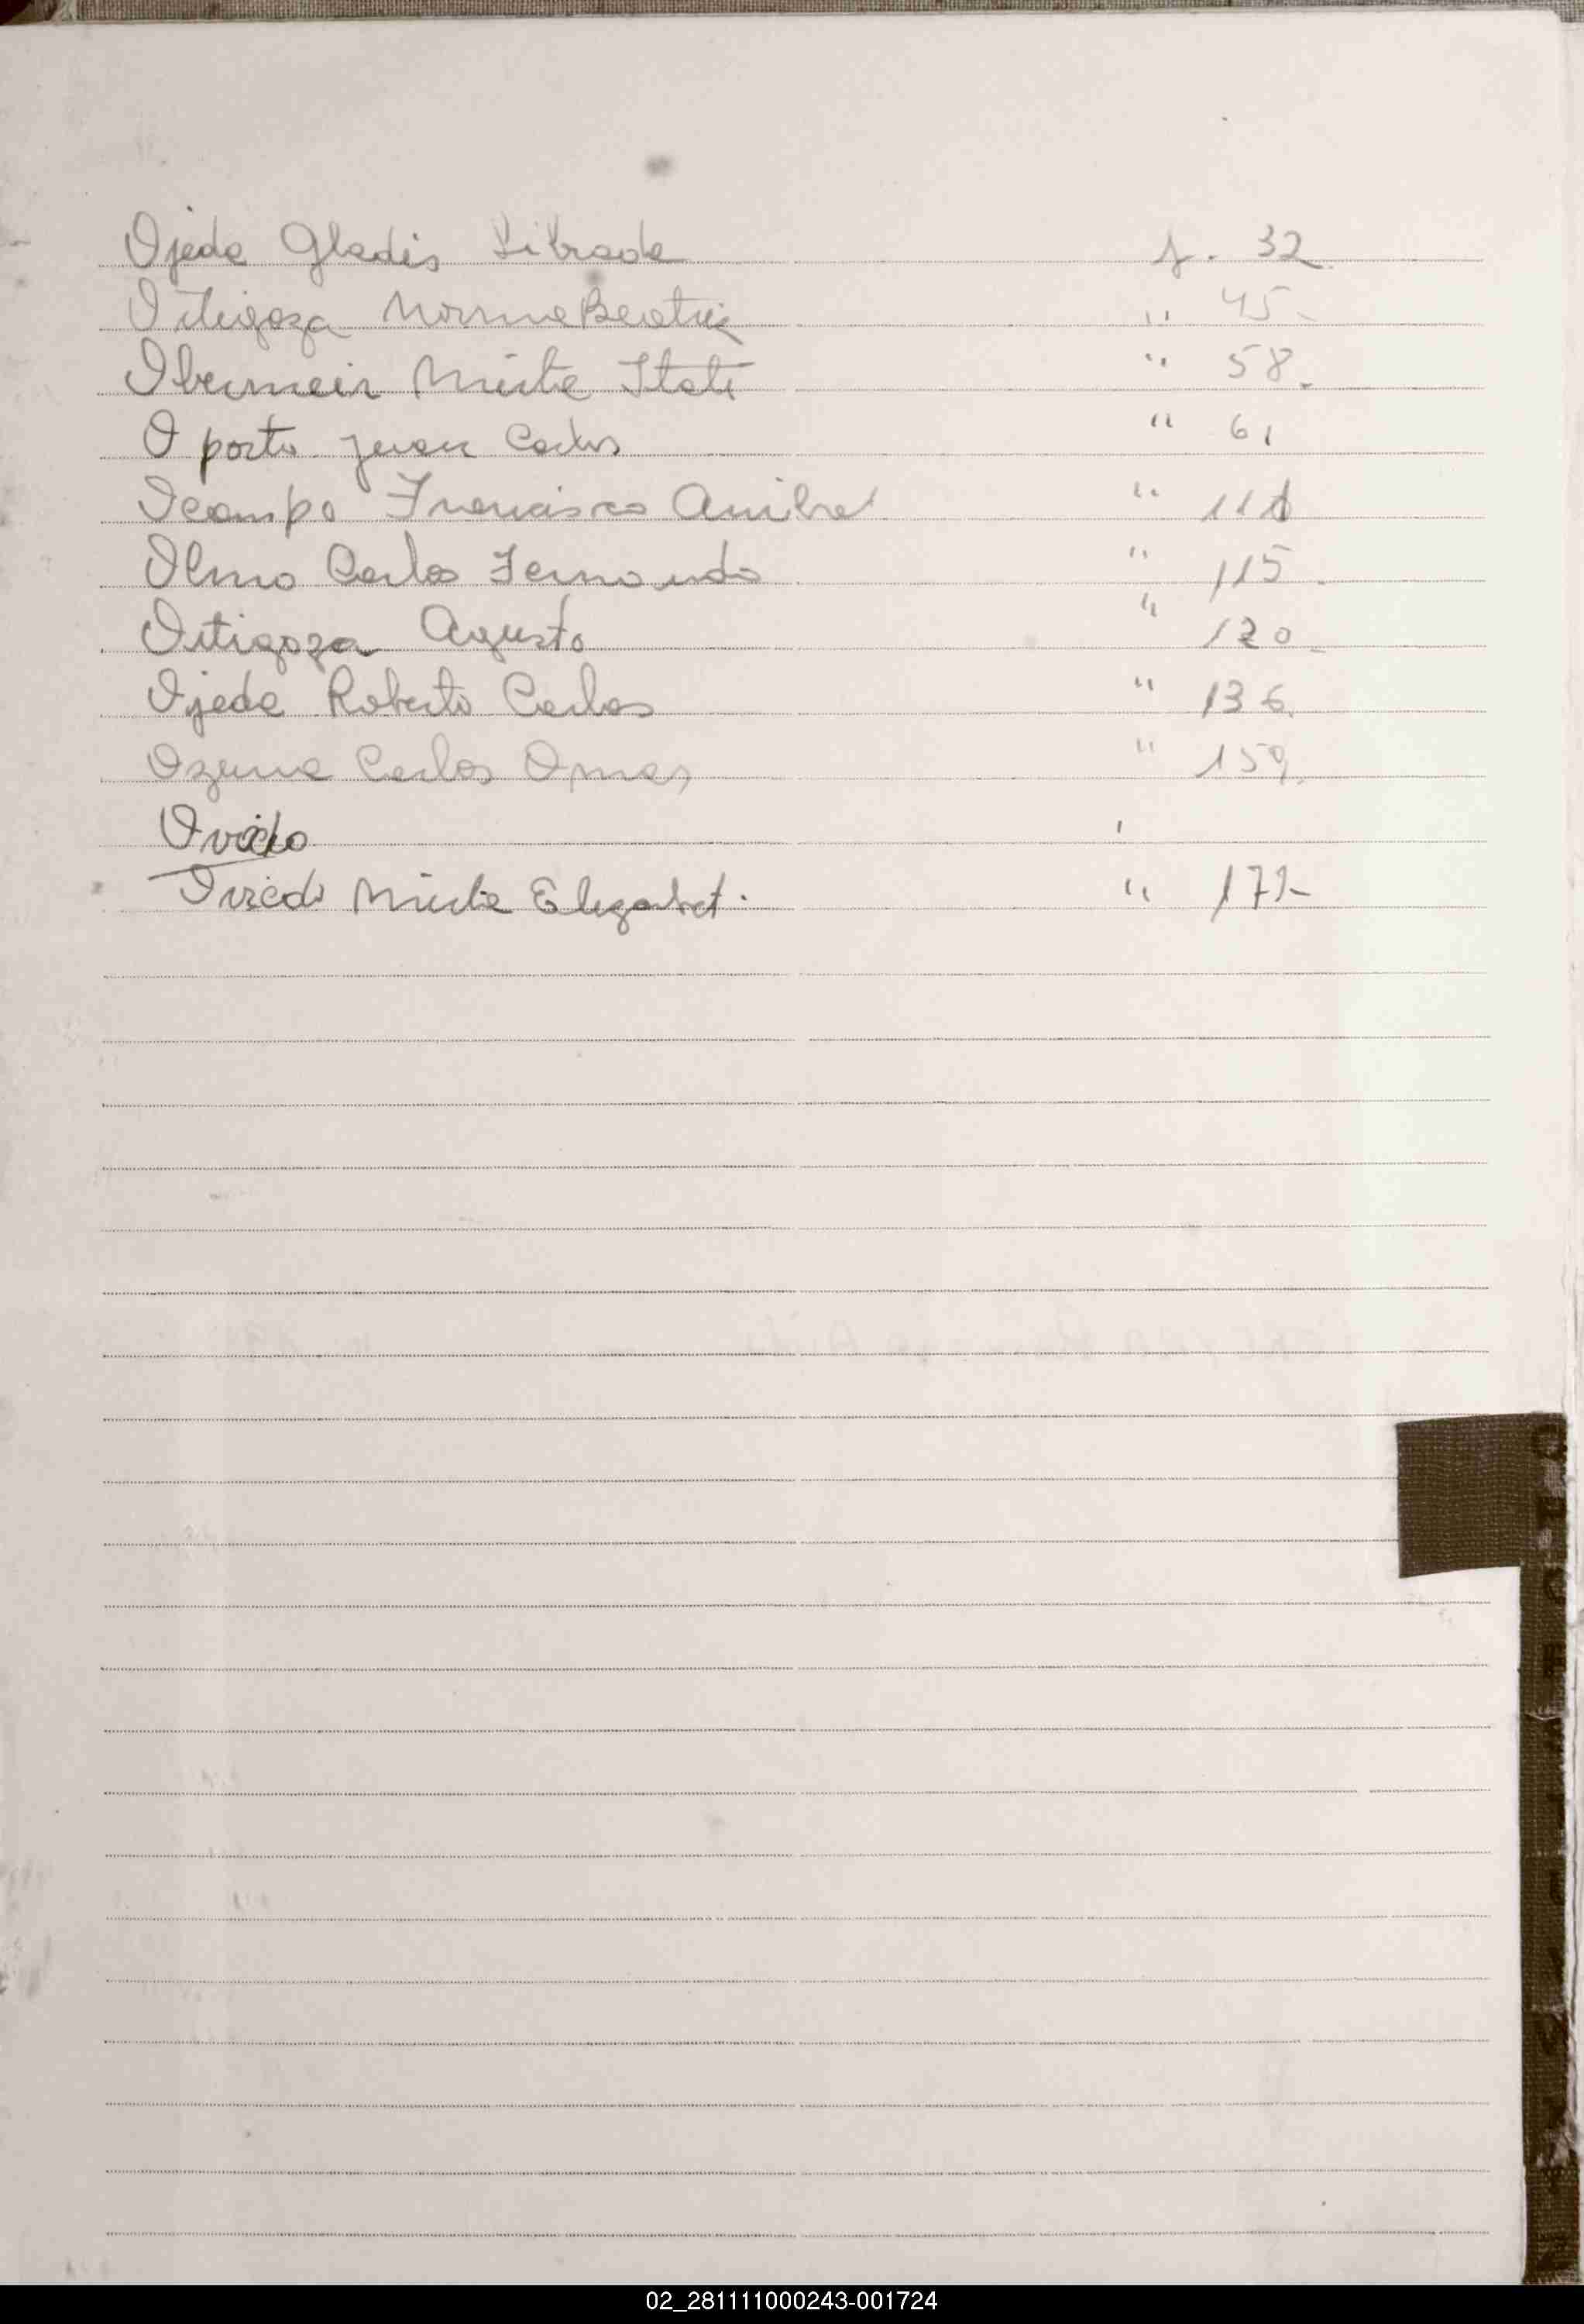 Ojeda Gladis Librada f. 32
Ortigoza Norma Beatriz " 45-
Obermeir Mirta Itati " 58.
Oporto Juan Carlos " 61
Ocampo Francisco Anibal " 111
Olmo Carlos Fernando " 115.
Ortigoza Agusto " 120-
Ojeda Roberto Carlos " 136.
Ozuna Carlos Omar " 159.
Oviedo '
Oviedo Mirta Elizabet. "
02_281111000243-001724